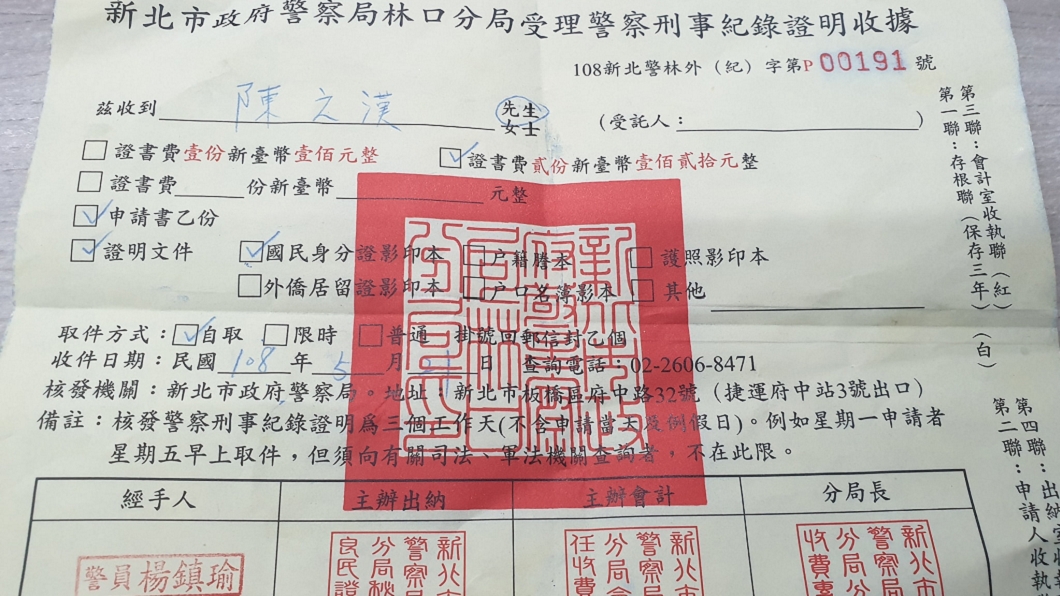 新北市政府警察局林口分局受理警察刑事紀錄證明收據
108新北警林外（紀）字第P 00191 號
茲收到 陳之漢 先生 女士 （受託人： ）
□ 證書費壹份新臺幣壹佰元整 ☑ 證書費貳份新臺幣壹佰貳拾元整
□ 證書費 份新臺幣 元整
☑ 申請書乙份
☑ 證明文件 ☑ 國民身分證影印本 □ 戶籍謄本 □ 護照影印本
□ 外僑居留證影印本 □ 戶口名簿影本 □ 其他
取件方式：☑ 自取 □ 限時 □ 普通 掛號回郵信封乙個
收件日期：民國 108 年 5 月 21 日 查詢電話：02-2606-8471
核發機關：新北市政府警察局。地址：新北市板橋區府中路32號（捷運府中站3號出口）
備註：核發警察刑事紀錄證明為三個工作天(不含申請當天及例假日)。例如星期一申請者
星期五早上取件，但須向有關司法、軍法機關查詢者，不在此限。
經手人 主辦出納 主辦會計 分局長
警員楊鎮瑜
新北市
警察局
分局
良民證
新北市
警察局
分局會
任收費
新北市
警察局
分局分
收費
第三聯：會計室收執聯（紅）
第一聯：存根聯（保存三年）（白）
第四聯：出納室收執
第二聯：申請人收執